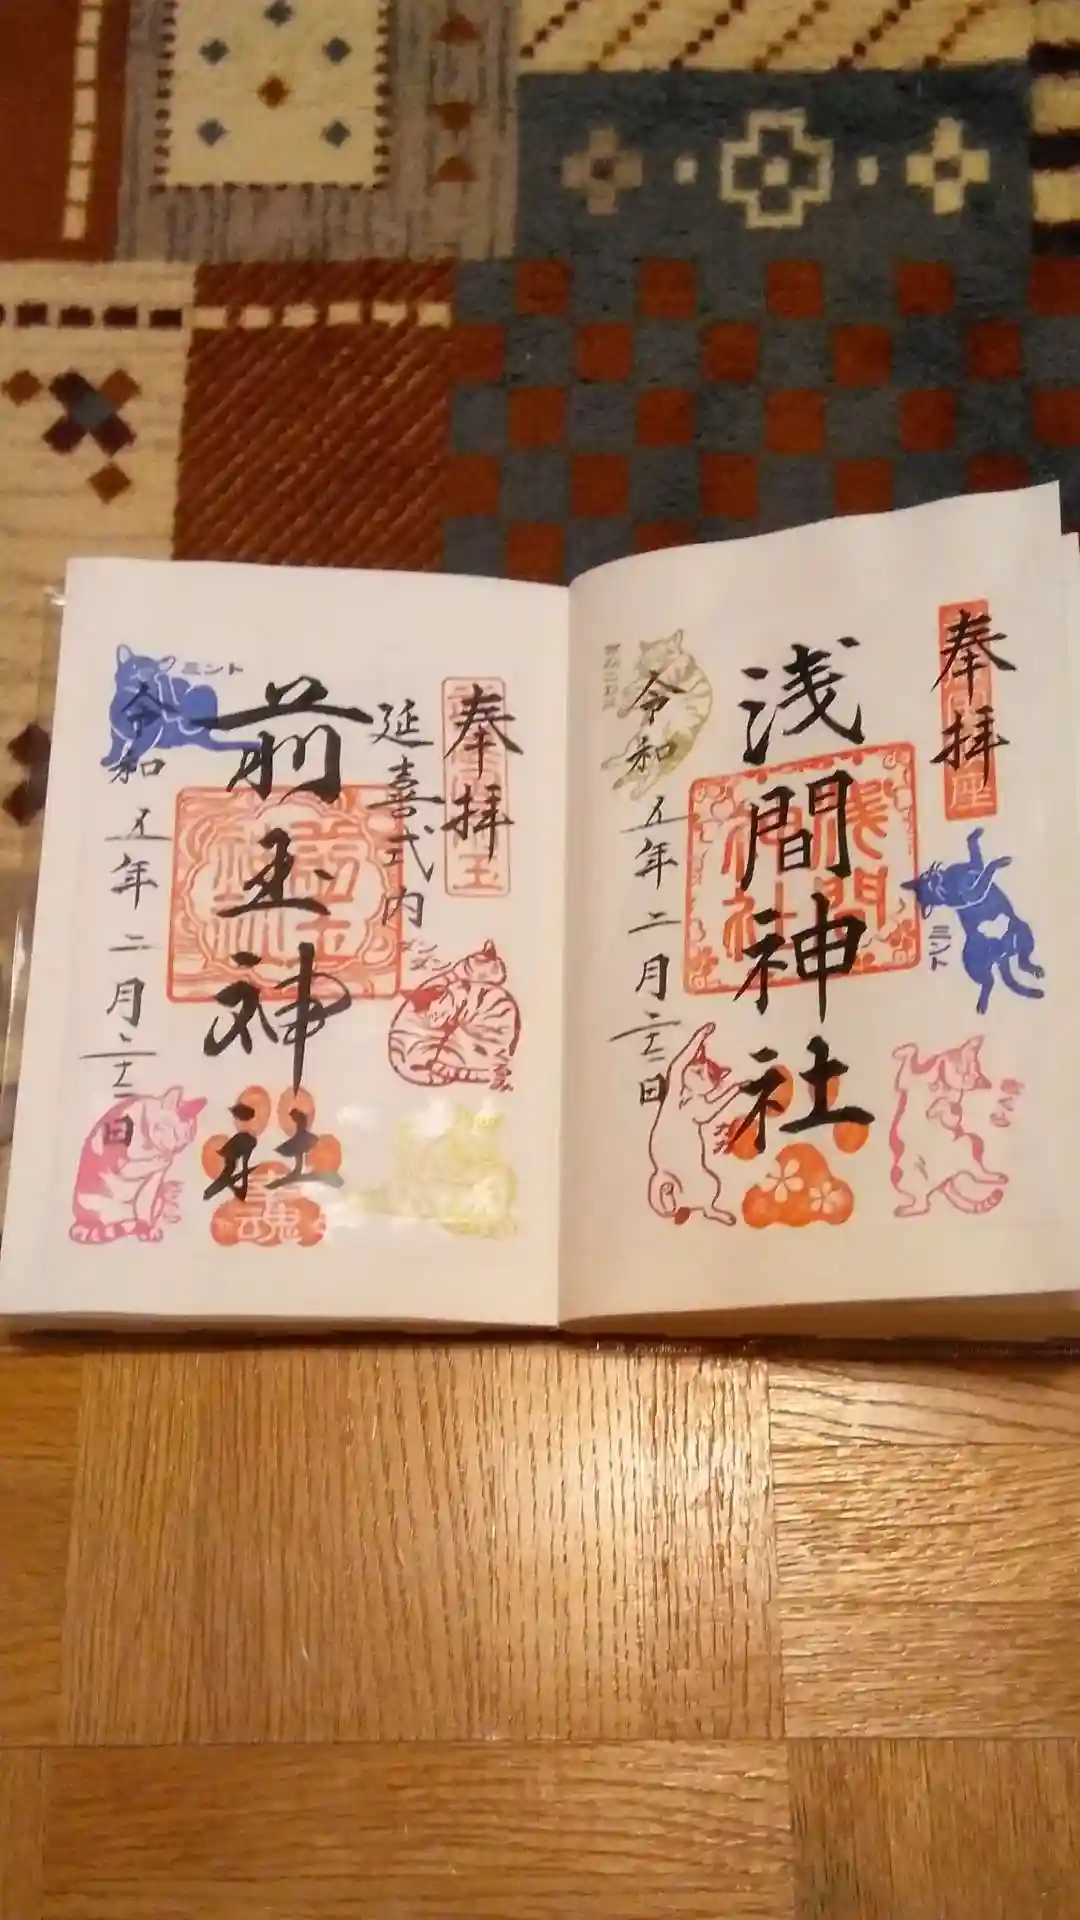 奉拝
浅間神社
令和五年二月二十二日
ミント
奉拝
延喜式内
前玉神社
令和五年二月二十二日
ミント
魂